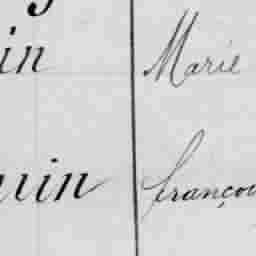 in Marie
uin françou